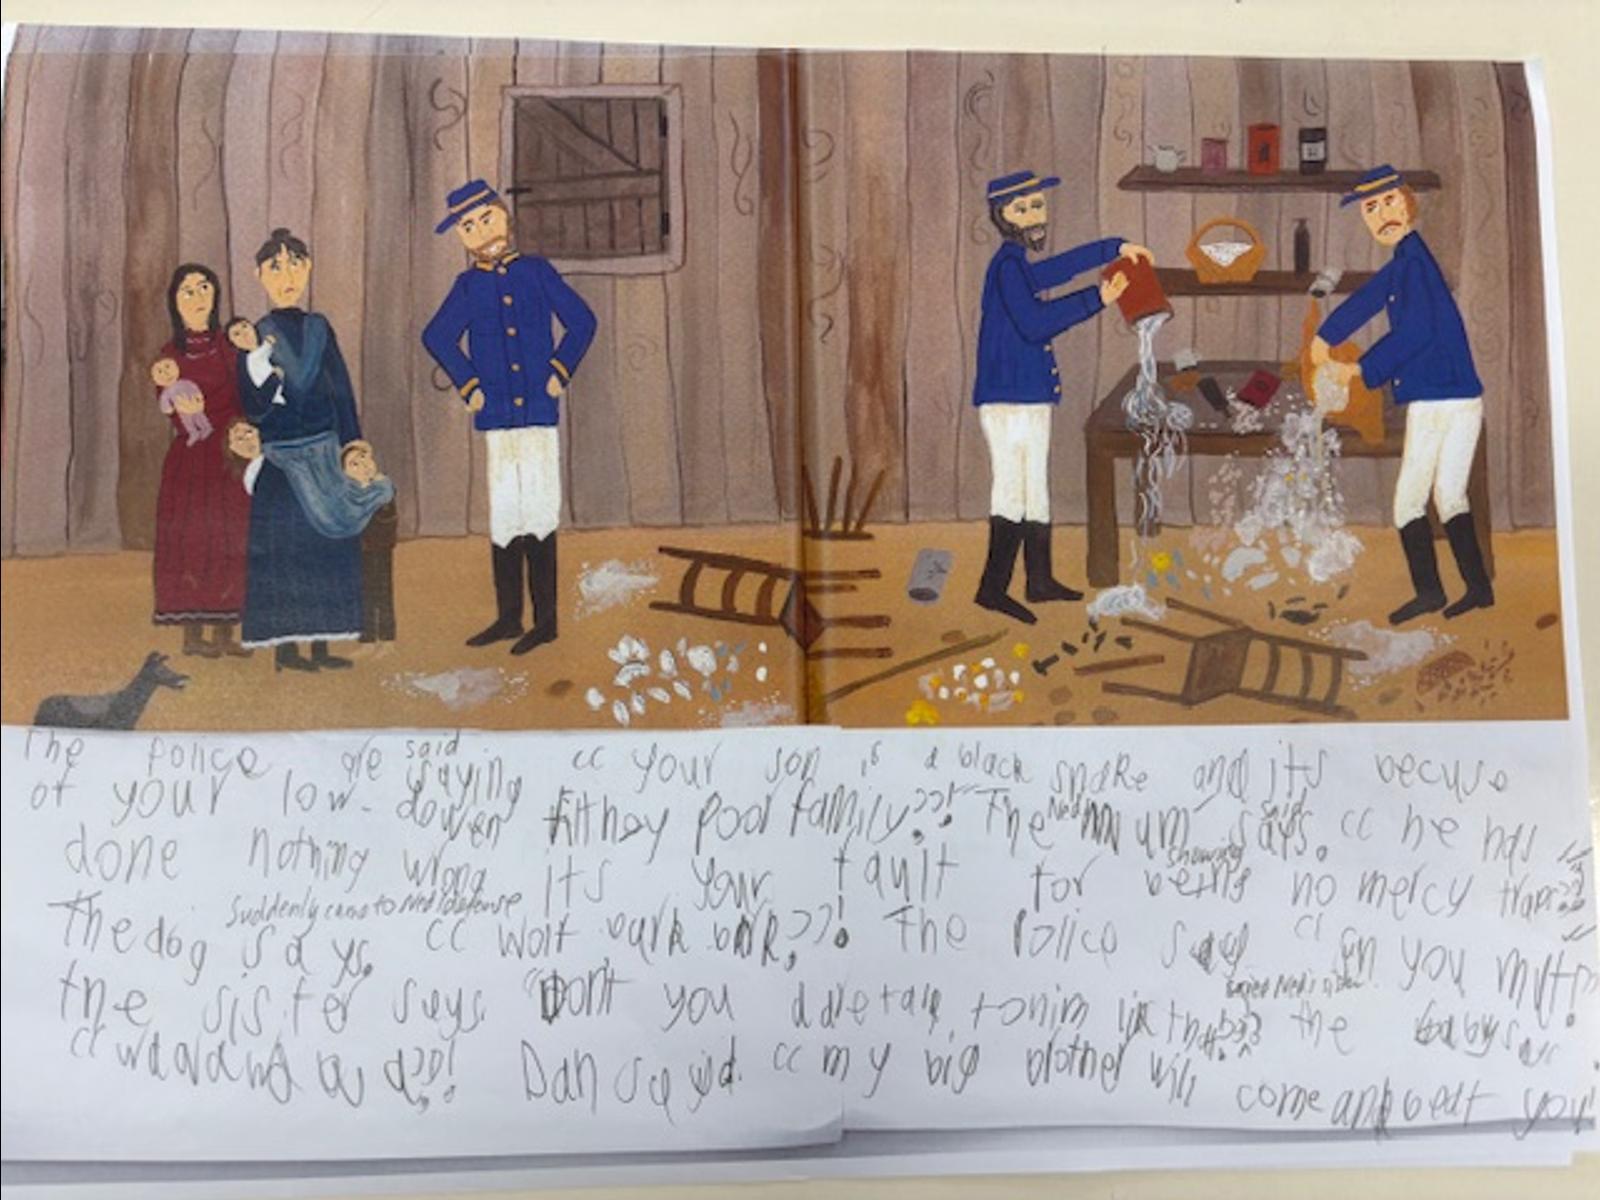 The police are said saying "your son is a black snake and its becuse
of your low-dowen filthey poor family"! The Ned mum said says. "he has
done nothing wrong its your fault for showing being no mercy
The dog suddenly came to Ned defense says. "wolf bark bark."! The Police says "on you mutt"!
the sister says "Dont you dare talk to him like that" cried Ned's sister. the babys
"wawawawawa"! Dan sayed. "my big brother will
come and beat you!